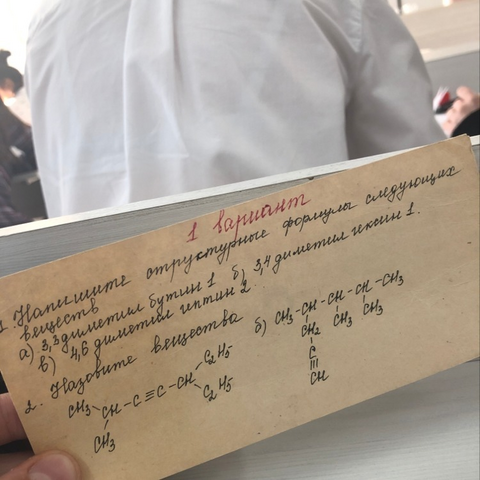 1 вариант
1. Напишите структурные формулы следующих
веществ
а) 3,3 диметил бутин 1 б) 3,4 диметил гексин 1.
в) 4,6 диметил гептин 2.
2. Назовите вещества
CH₃-CH-C≡C-CH-C₂H₅
CH₃ C₂H₅
б) CH₃-CH-CH-CH-CH₃
CH₂ CH₃ CH₃
C
|||
CH